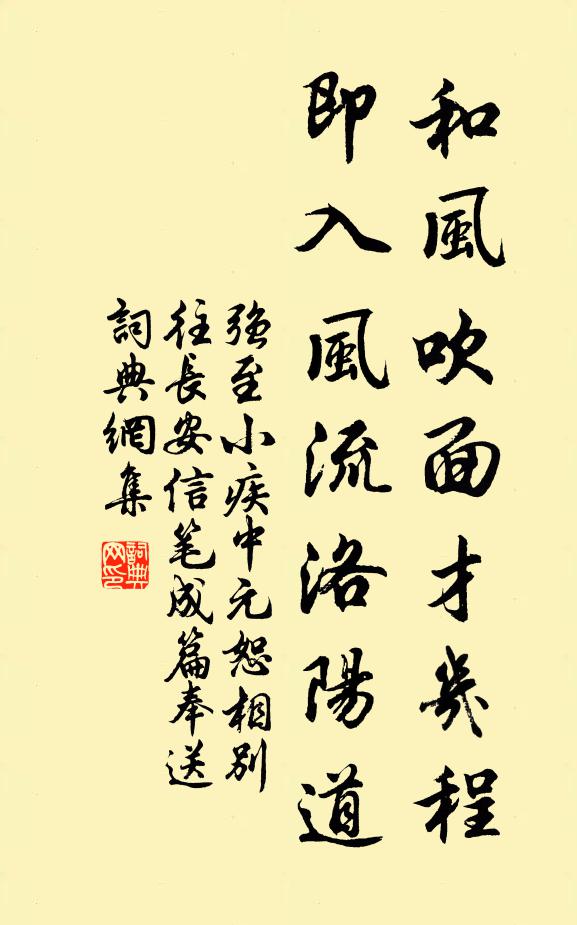 和風吹面才幾程
即入風流洛陽道
強至小疾中元恕相別
往長安信笔成篇奉送
詞典網集
詞典
网印